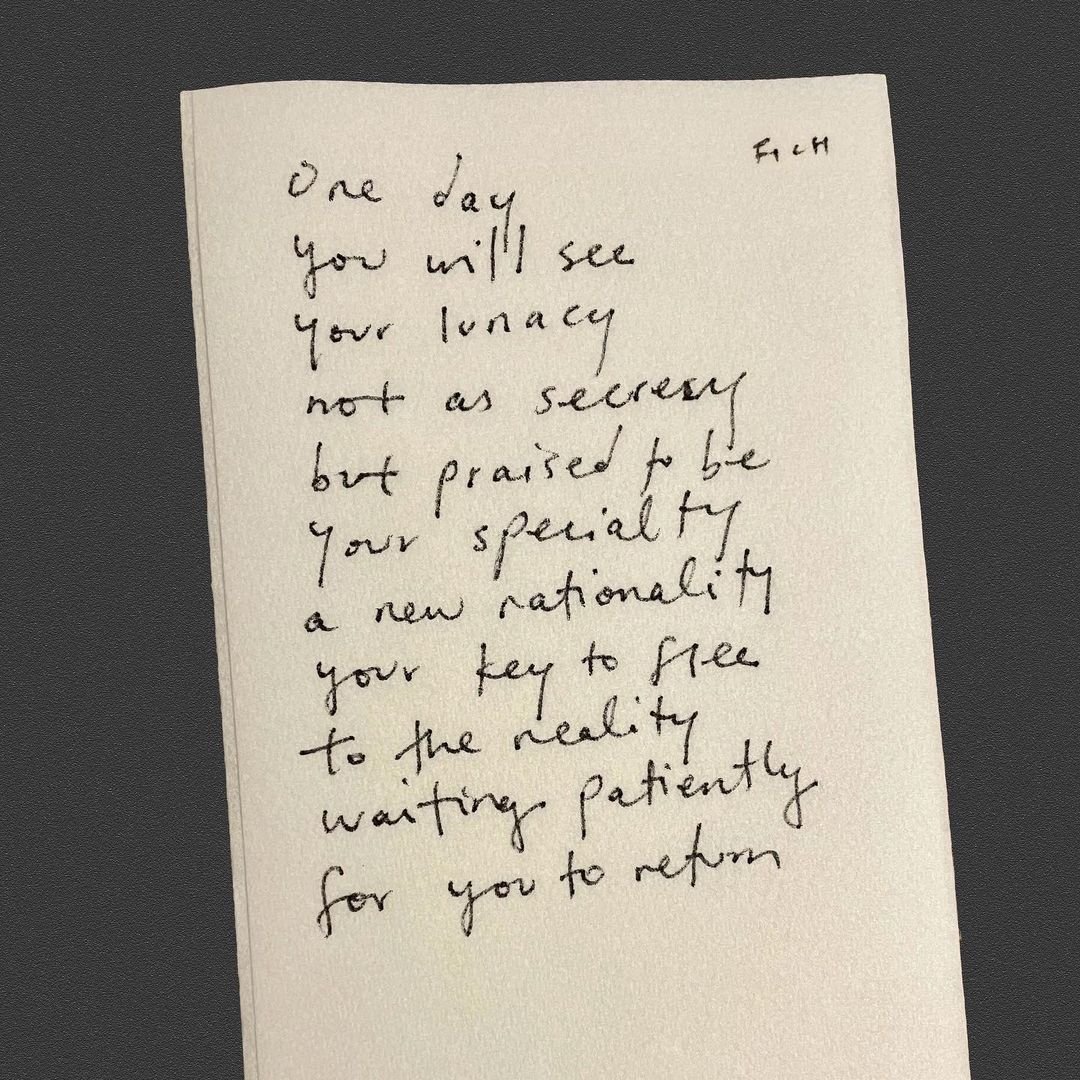 One day
you will see
your lunacy
not as secresy
but praised to be
your specialty
a new rationality
your key to free
to the reality
waiting patiently
for you to return